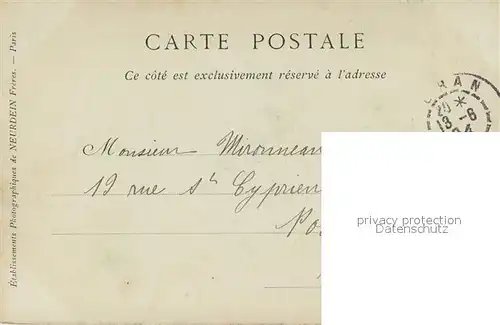 CARTE POSTALE
Ce côté est exclusivement réservé à l'adresse
Établissements Photographiques de NEURDEIN Frères. — Paris
ORAN
20 *
13 -6
04
Monsieur Mironneau
19 rue St Cyprien
Po
privacy protection
Datenschutz